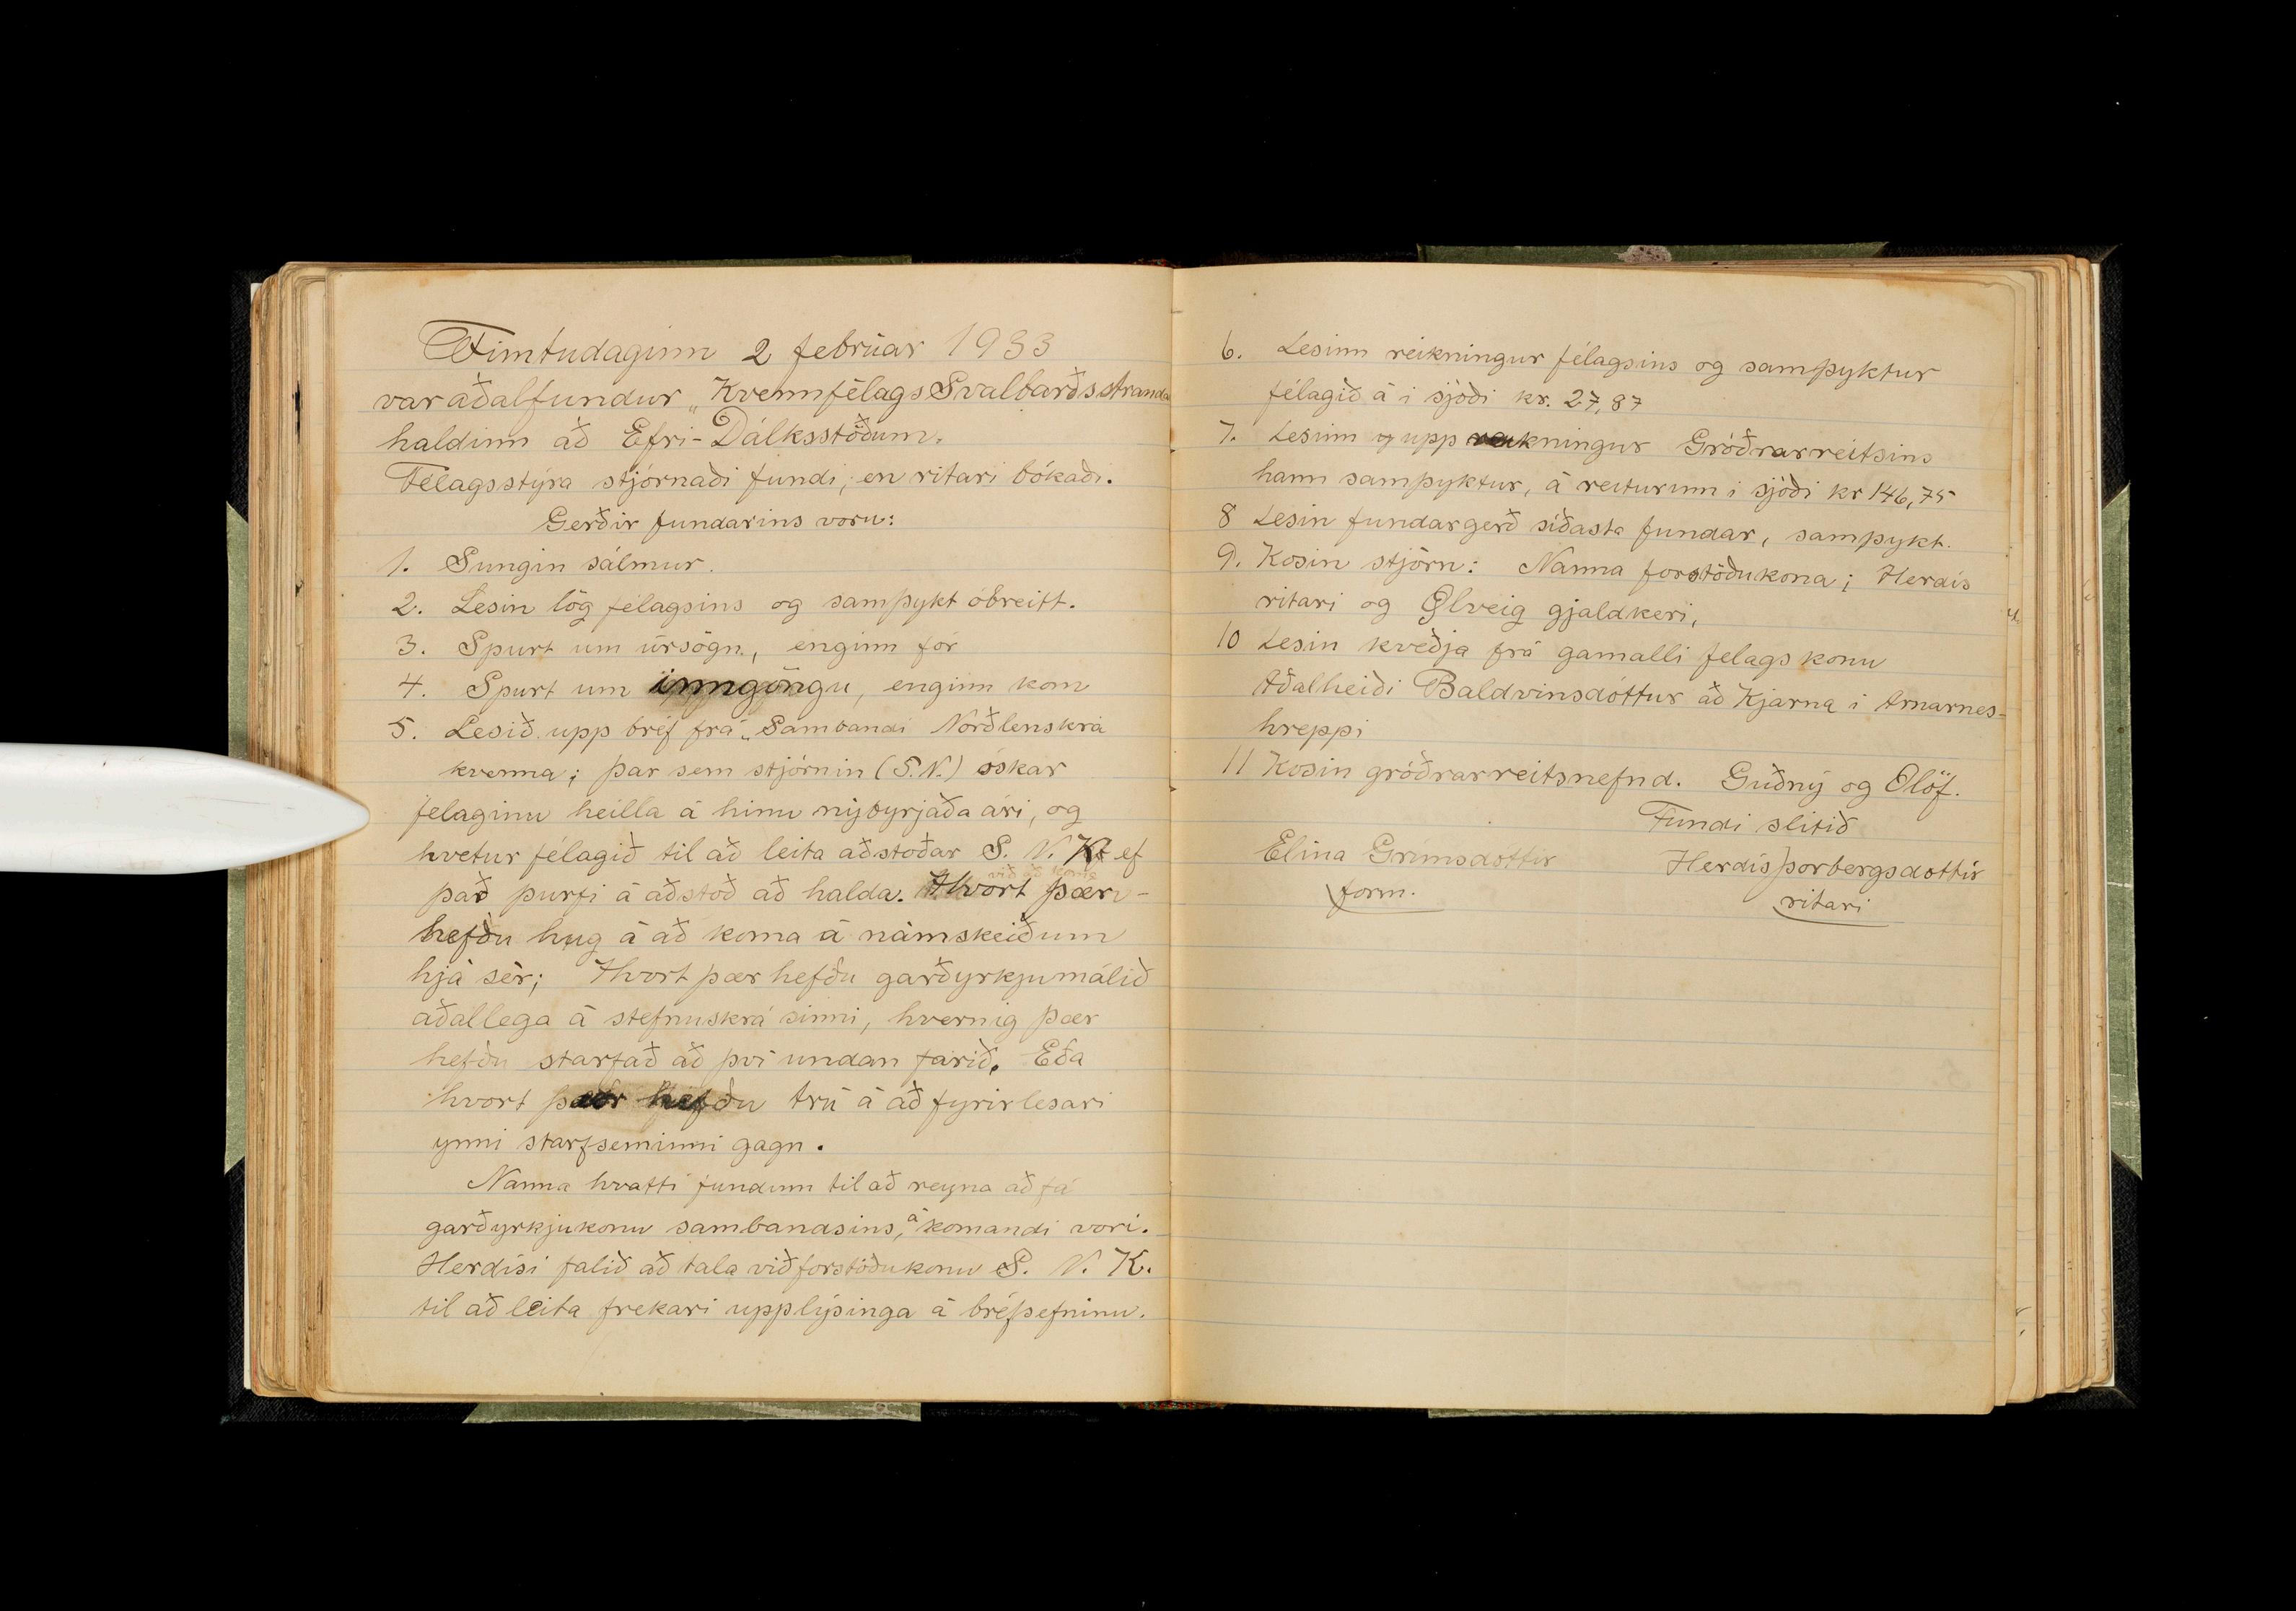 Fimtudaginn 2 febrúar 1933
var aðalfundur „Kvennfélags Svalbarðsstranda
haldinn að Efri-Dálksstöðum.
Félagsstýra stjórnaði fundi, en ritari bókaði.
Gerðir fundarins voru:
1. Sungin sálmur.
2. Lesin lög félagsins og samþykt óbreitt.
3. Spurt um úrsögn, enginn fór
4. Spurt um inngöngu, enginn kom
5. Lesið upp bréf frá „Sambandi Norðlenskra
kvenna; þar sem stjórnin (S.N.) óskar
felaginu heilla á hinu nýbyrjaða ári, og
hvetur félagið til að leita aðstoðar S. N. K. ef
það þurfi á aðstoð að halda. Hvort þær
hefðu hug á að koma á námskeiðum
hjá sér; Hvort þær hefðu garðyrkjumálið
aðallega á stefnuskrá sinni, hvernig þær
hefðu starfað að því undan farið. Eða
hvort þær hefðu trú á að fyrirlesari
ynni starfseminni gagn.
Nanna hvatti fundinn til að reyna að fá
garðyrkjukonu sambandsins, á komandi vori.
Herdísi falið að tala við forstöðukonu S. N. K.
til að leita frekari upplýsinga á bréfsefninu.
6. Lesinn reikningur félagsins og samþyktur
félagið á i sjóði kr. 27,87
7. Lesinn upp reikningur Gróðrarreitsins
hann samþyktur, á reiturinn i sjóði kr 146,75
8 Lesin fundargerð síðasta fundar, samþykt.
9. Kosin stjórn: Nanna forstöðukona; Herdís
ritari og Ølveig gjaldkeri,
10 Lesin kveðja frá gamalli felags konu
Aðalheiði Baldvinsdóttur að Kjarna i Arnarnes-
hreppi
11 Kosin gróðrarreitsnefnd. Guðný og Ólöf.
Fundi slitið
Elína Grímsdóttir Herdís Þorbergsdottir
form. ritari